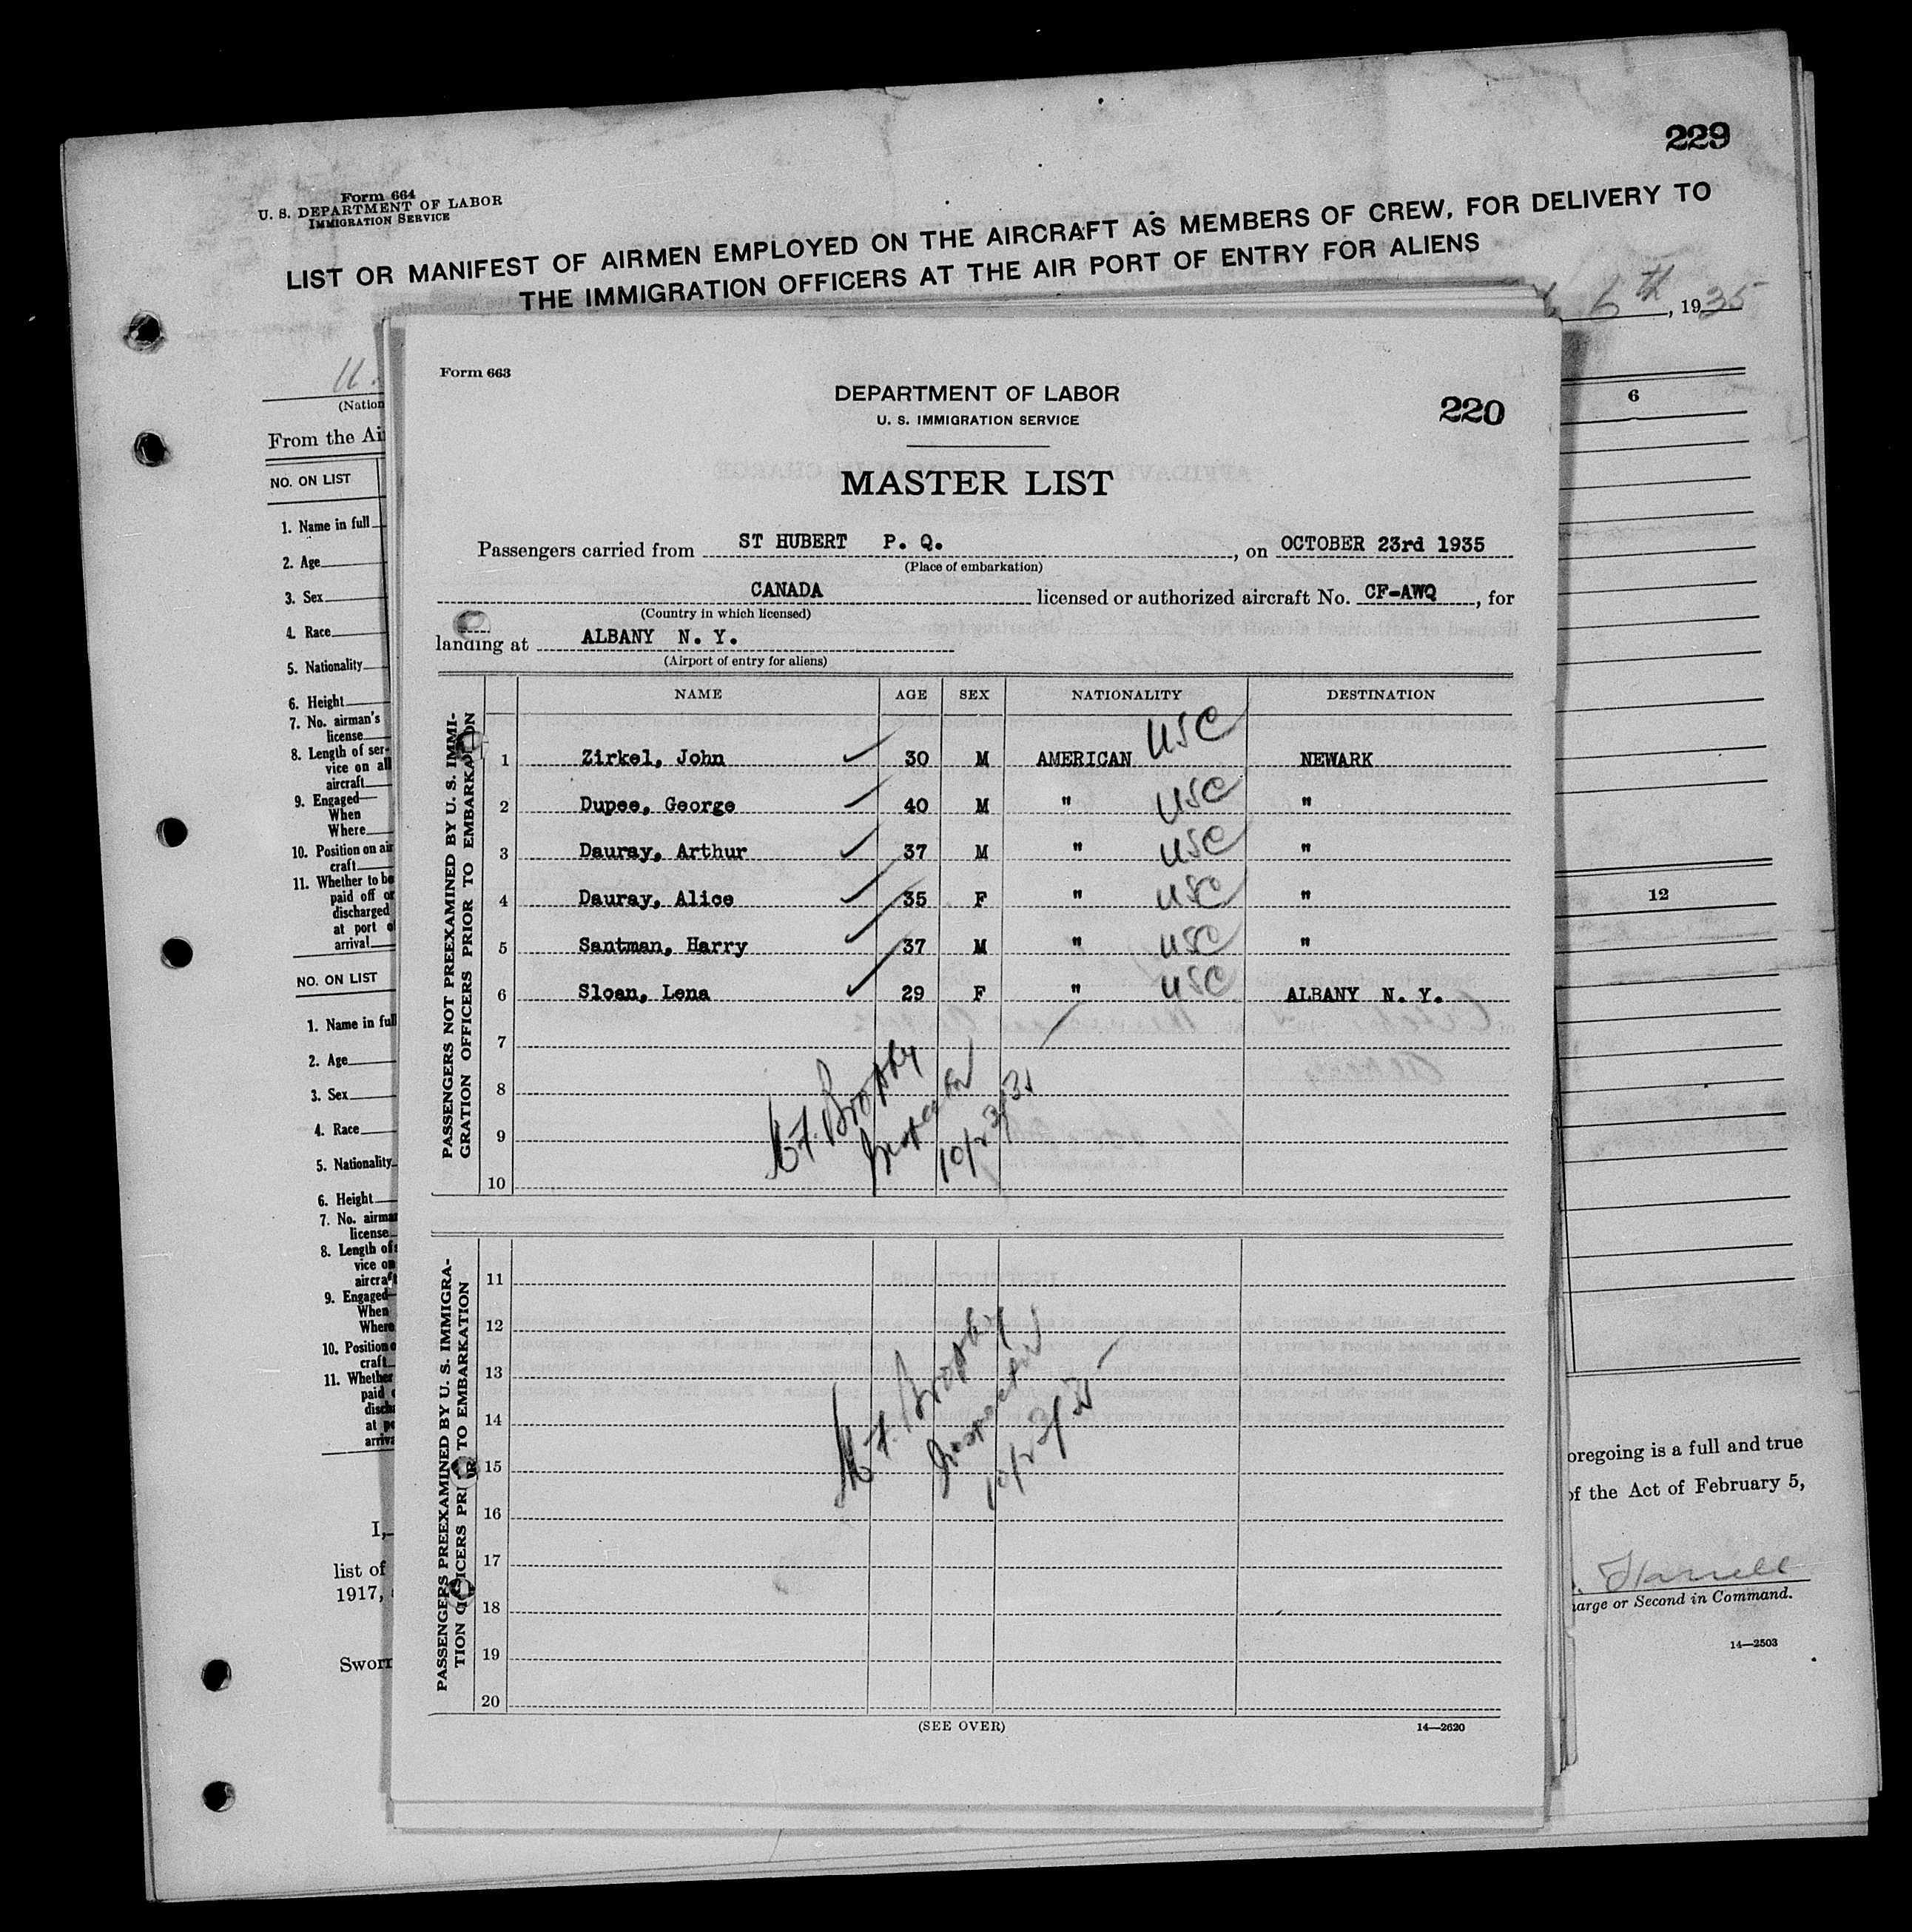 229
Form 664
U. S. DEPARTMENT OF LABOR
IMMIGRATION SERVICE
LIST OR MANIFEST OF AIRMEN EMPLOYED ON THE AIRCRAFT AS MEMBERS OF CREW, FOR DELIVERY TO
THE IMMIGRATION OFFICERS AT THE AIR PORT OF ENTRY FOR ALIENS
6th, 1935
U.
(Nation
From the Ai
NO. ON LIST
6
1. Name in full
2. Age
3. Sex
4. Race
5. Nationality
6. Height
7. No. airman's
license
8. Length of ser-
vice on all
aircraft
9. Engaged—
When
Where
10. Position on air
craft
11. Whether to be
paid off or
discharged
at port o
arrival
NO. ON LIST
12
1. Name in full
2. Age
3. Sex
4. Race
5. Nationality
6. Height
7. No. airma
license
8. Length of
vice on
aircraft
9. Engaged—
When
Where
10. Position o
craft
11. Whether
paid
disch
at po
arriva
I,
oregoing is a full and true
list of
of the Act of February 5,
1917,
Harrell
harge or Second in Command.
Sworn
14—2503
Form 663
DEPARTMENT OF LABOR
U. S. IMMIGRATION SERVICE
220
MASTER LIST
Passengers carried from ST HUBERT P. Q. , on OCTOBER 23rd 1935
(Place of embarkation)
CANADA licensed or authorized aircraft No. CF-AWQ , for
(Country in which licensed)
landing at ALBANY N. Y.
(Airport of entry for aliens)
NAME AGE SEX NATIONALITY DESTINATION
PASSENGERS NOT PREEXAMINED BY U. S. IMMI-
GRATION OFFICERS PRIOR TO EMBARKATION
1 Zirkel, John 30 M AMERICAN USC NEWARK
2 Dupee, George 40 M " USC "
3 Dauray, Arthur 37 M " USC "
4 Dauray, Alice 35 F " USC "
5 Santman, Harry 37 M " USC "
6 Sloan, Lena 29 F " USC ALBANY N. Y.
7
8
9
10
Brophy
Inspector
10/23/35
PASSENGERS PREEXAMINED BY U. S. IMMIGRA-
TION OFFICERS PRIOR TO EMBARKATION
11
12
13
14
15
16
17
18
19
20
Brophy
Inspector
10/23/35
(SEE OVER)
14—2620